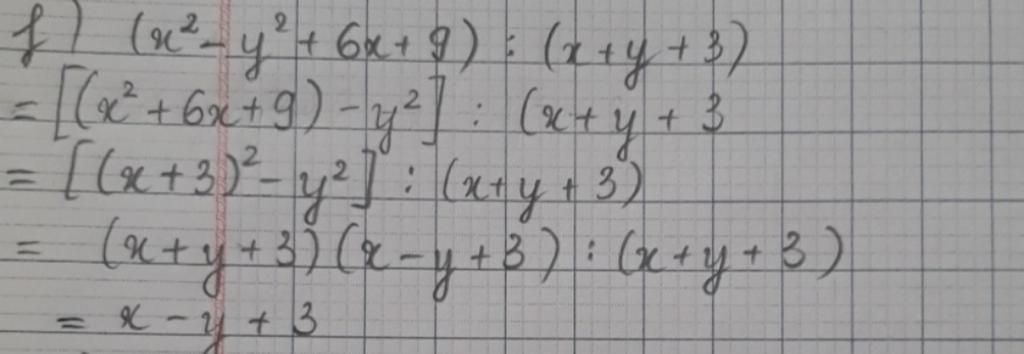 f) (x² - y² + 6x + 9) : (x + y + 3)
= [(x² + 6x + 9) - y²] : (x + y + 3
= [(x + 3)² - y²] : (x + y + 3)
= (x + y + 3)(x - y + 3) : (x + y + 3)
= x - y + 3